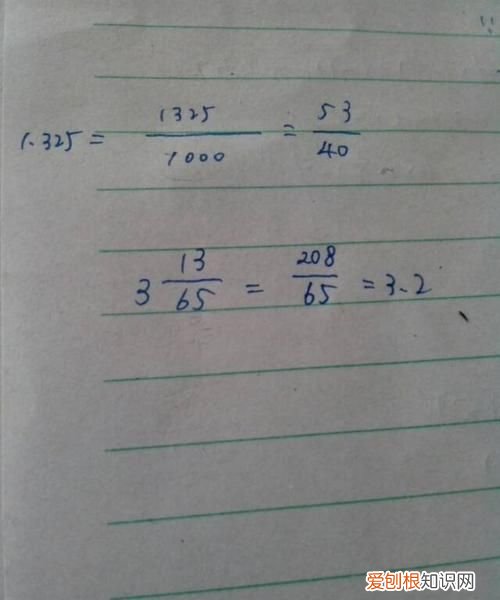 1.325 = 1325/1000 = 53/40
3 13/65 = 208/65 = 3.2
爱刨根知识网